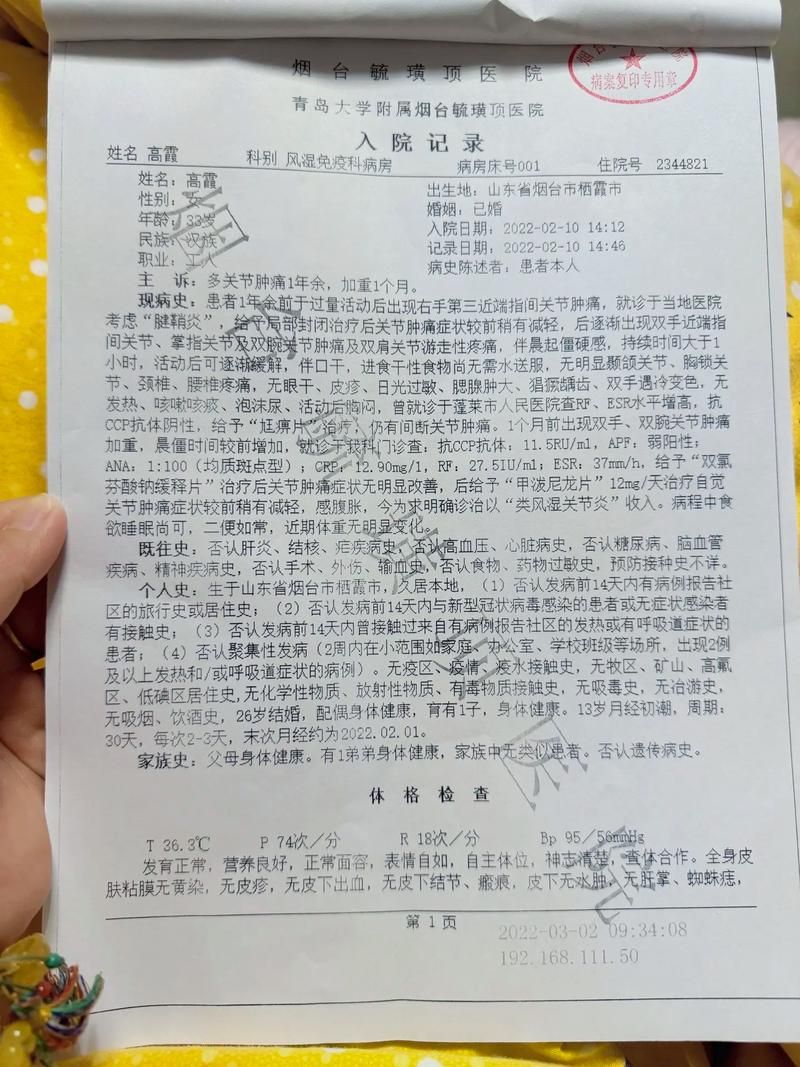 病案复印专用章
烟台毓璜顶医院
青岛大学附属烟台毓璜顶医院
入院记录
姓名 高霞 科别 风湿免疫科病房 病房床号001 住院号 2344821
姓名：高霞 出生地：山东省烟台市栖霞市
性别：女 婚姻：已婚
年龄：33岁 入院日期：2022-02-10 14:12
民族：汉族 记录日期：2022-02-10 14:46
职业：工人 病史陈述者：患者本人
主 诉：多关节肿痛1年余，加重1个月。
现病史：患者1年余前于过量活动后出现右手第三近端指间关节肿痛，就诊于当地医院
考虑“腱鞘炎”，给予局部封闭治疗后关节肿痛症状较前稍有减轻，后逐渐出现双手近端指
间关节、掌指关节及双腕关节肿痛及双肩关节游走性疼痛，伴晨起僵硬感，持续时间大于1
小时，活动后可逐渐缓解，伴口干，进食干性食物尚无需水送服，无明显颞颌关节、胸锁关
节、颈椎、腰椎疼痛，无眼干、皮疹、日光过敏、腮腺肿大、猖獗龋齿、双手遇冷变色，无
发热、咳嗽咳痰、泡沫尿、活动后胸闷，曾就诊于蓬莱市人民医院查RF、ESR水平增高，抗
CCP抗体阴性，给予“尪痹片”治疗，仍有间断关节肿痛。1个月前出现双手、双腕关节肿痛
加重，晨僵时间较前增加，就诊于我科门诊查：抗CCP抗体：11.5RU/ml，APF：弱阳性；
ANA：1:100（均质斑点型）；CRP：12.90mg/l，RF：27.5IU/ml；ESR：37mm/h，给予“双氯
芬酸钠缓释片”治疗后关节肿痛症状无明显改善，后给予“甲泼尼龙片”12mg/天治疗自觉
关节肿痛症状较前稍有减轻，感腹胀，今为求明确诊治以“类风湿关节炎”收入。病程中食
欲睡眠尚可，二便如常，近期体重无明显变化。
既往史：否认肝炎、结核、疟疾病史，否认高血压、心脏病史，否认糖尿病、脑血管
疾病、精神疾病史，否认手术、外伤、输血史，否认食物、药物过敏史，预防接种史不详。
个人史：生于山东省烟台市栖霞市，久居本地，（1）否认发病前14天内有病例报告社
区的旅行史或居住史；（2）否认发病前14天内与新型冠状病毒感染的患者或无症状感染者
有接触史；（3）否认发病前14天内曾接触过来自有病例报告社区的发热或有呼吸道症状的
患者；（4）否认聚集性发病（2周内在小范围如家庭、办公室、学校班级等场所，出现2例
及以上发热和/或呼吸道症状的病例）。无疫区、疫情、疫水接触史，无牧区、矿山、高氟
区、低碘区居住史，无化学性物质、放射性物质、有毒物质接触史，无吸毒史，无冶游史，
无吸烟、饮酒史，26岁结婚，配偶身体健康，育有1子，身体健康。13岁月经初潮，周期：
30天，每次2-3天，末次月经约为2022.02.01。
家族史：父母身体健康。有1弟弟身体健康，家族中无类似患者。否认遗传病史。
体格检查
T 36.3℃ P 74次/分 R 18次/分 Bp 95/56mmHg
发育正常，营养良好，正常面容，表情自如，自主体位，神志清楚，查体合作。全身皮
肤粘膜无黄染，无皮疹，无皮下出血，无皮下结节、瘢痕，皮下无水肿，无肝掌、蜘蛛痣，
第 1 页
2022-03-02 09:34:08
192.168.111.50